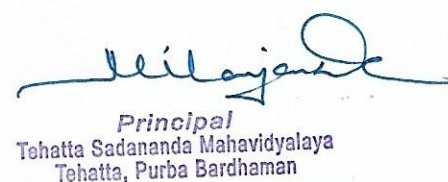 Principal
Tehatta Sadananda Mahavidyalaya
Tehatta, Purba Bardhaman